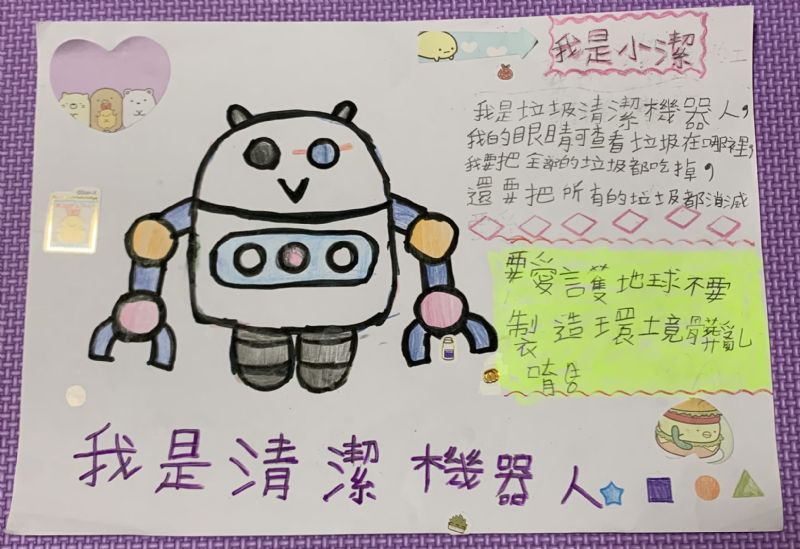 我是小潔
我是垃圾清潔機器人，
我的眼睛可查看垃圾在哪裡，
我要把全部的垃圾都吃掉，
還要把所有的垃圾都消滅
要愛言蒦地球不要
製造環境髒亂
唷!
我是清潔機器人